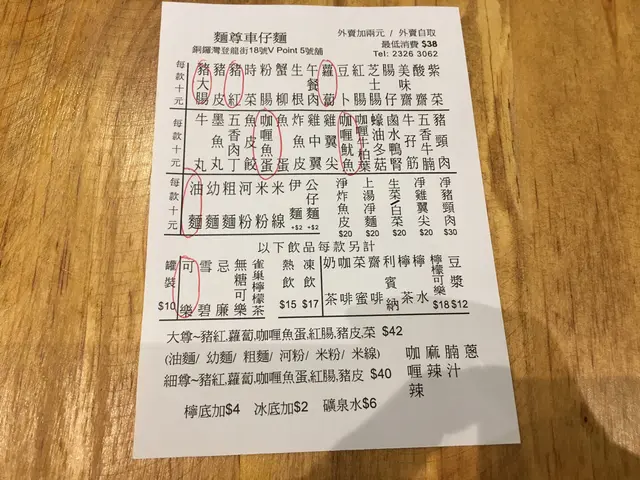 麵尊車仔麵
銅鑼灣登龍街18號V Point 5號舖
外賣加兩元 / 外賣自取
最低消費 $38
Tel: 2326 3062
每款十元
豬大腸
豬皮
豬紅
時菜
粉腸
蟹柳
生根
午餐肉
蘿蔔
豆卜
紅腸
芝士腸
腸仔
美味齋
酸齋
紫菜
每款十元
牛丸
墨魚丸
五香肉丁
魚皮餃
咖喱魚蛋
魚蛋
炸魚皮
雞中翼
雞翼尖
咖喱魷魚
咖喱牛柏葉
蠔油冬菇
鹵水鴨腎
牛孖筋
五香牛腩
豬頸肉
每款十元
油麵
幼麵
粗麵
河粉
米粉
米線
伊麵 +$2
公仔麵 +$2
淨炸魚皮 $20
上湯淨麵 $20
生菜/白菜 $20
淨雞翼尖 $20
淨豬頸肉 $30
以下飲品每款另計
罐裝 $10
可樂
雪碧
忌廉
無糖可樂
雀巢檸檬茶
熱飲 $15
凍飲 $17
奶茶
咖啡
菜蜜
齋啡
利賓納
檸茶
檸水
檸檬可樂 $18
豆漿 $12
大尊~豬紅,蘿蔔,咖喱魚蛋,紅腸,豬皮,菜 $42
(油麵/ 幼麵/ 粗麵/ 河粉/ 米粉/ 米線)
細尊~豬紅,蘿蔔,咖喱魚蛋,紅腸,豬皮 $40
咖喱辣
麻辣
腩汁
蔥
檸底加$4 冰底加$2 礦泉水$6